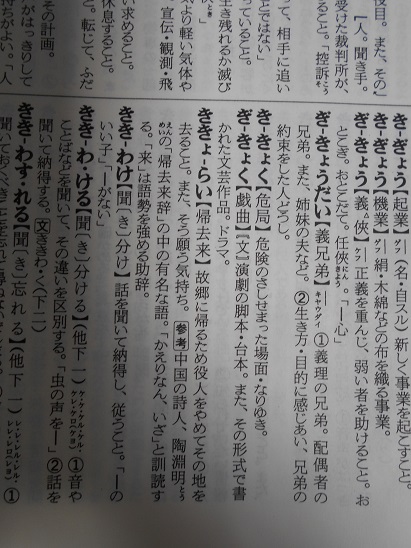 役目。また、その
【人。聞き手。
受けた裁判所が、
ること。「控訴
って、相手に追い
ことではない」
っていること。
き残れるか滅び
気より軽い気体や
宣伝・観測・飛
い求めること。
休息すること。
と。転じて、ふだ
その計画。
がはっきりして
持がよい。「人
き‐ぎょう【起業】(名・自スル)新しく事業を起こすこと。
き‐ぎょう【機業】絹・木綿などの布を織る事業。
ぎ‐きょう【義俠】正義を重んじ、弱い者を助けること。お
とこぎ。おとこだて。任俠。「―心」
ぎ‐きょうだい【義兄弟】①義理の兄弟。配偶者の
兄弟。また、姉妹の夫など。②生き方・目的に感じあい、兄弟の
約束をした人どうし。
き‐きょく【危局】危険のさしせまった場面・なりゆき。
ぎ‐きょく【戯曲】〖文〗演劇の脚本・台本。また、その形式で書
かれた文芸作品。ドラマ。
ききょ‐らい【帰去来】故郷に帰るため役人をやめてその地を
去ること。また、そう願う気持ち。参考中国の詩人、陶淵明
の「帰去来辞」の中の有名な語。「かえりなん、いざ」と訓読す
る。「来」は語勢を強める助辞。
きき‐わけ【聞(き)分け】話を聞いて納得し、従うこと。「―の
いい子」「―がない」
きき‐わ・ける【聞(き)分ける】(他下一)①音や
ことばなどを聞いて、その違いを区別する。「虫の声を―」②話を
聞いて納得する。文ききわ・く(下二)
きき‐わす・れる【聞(き)忘れる】(他下一)①